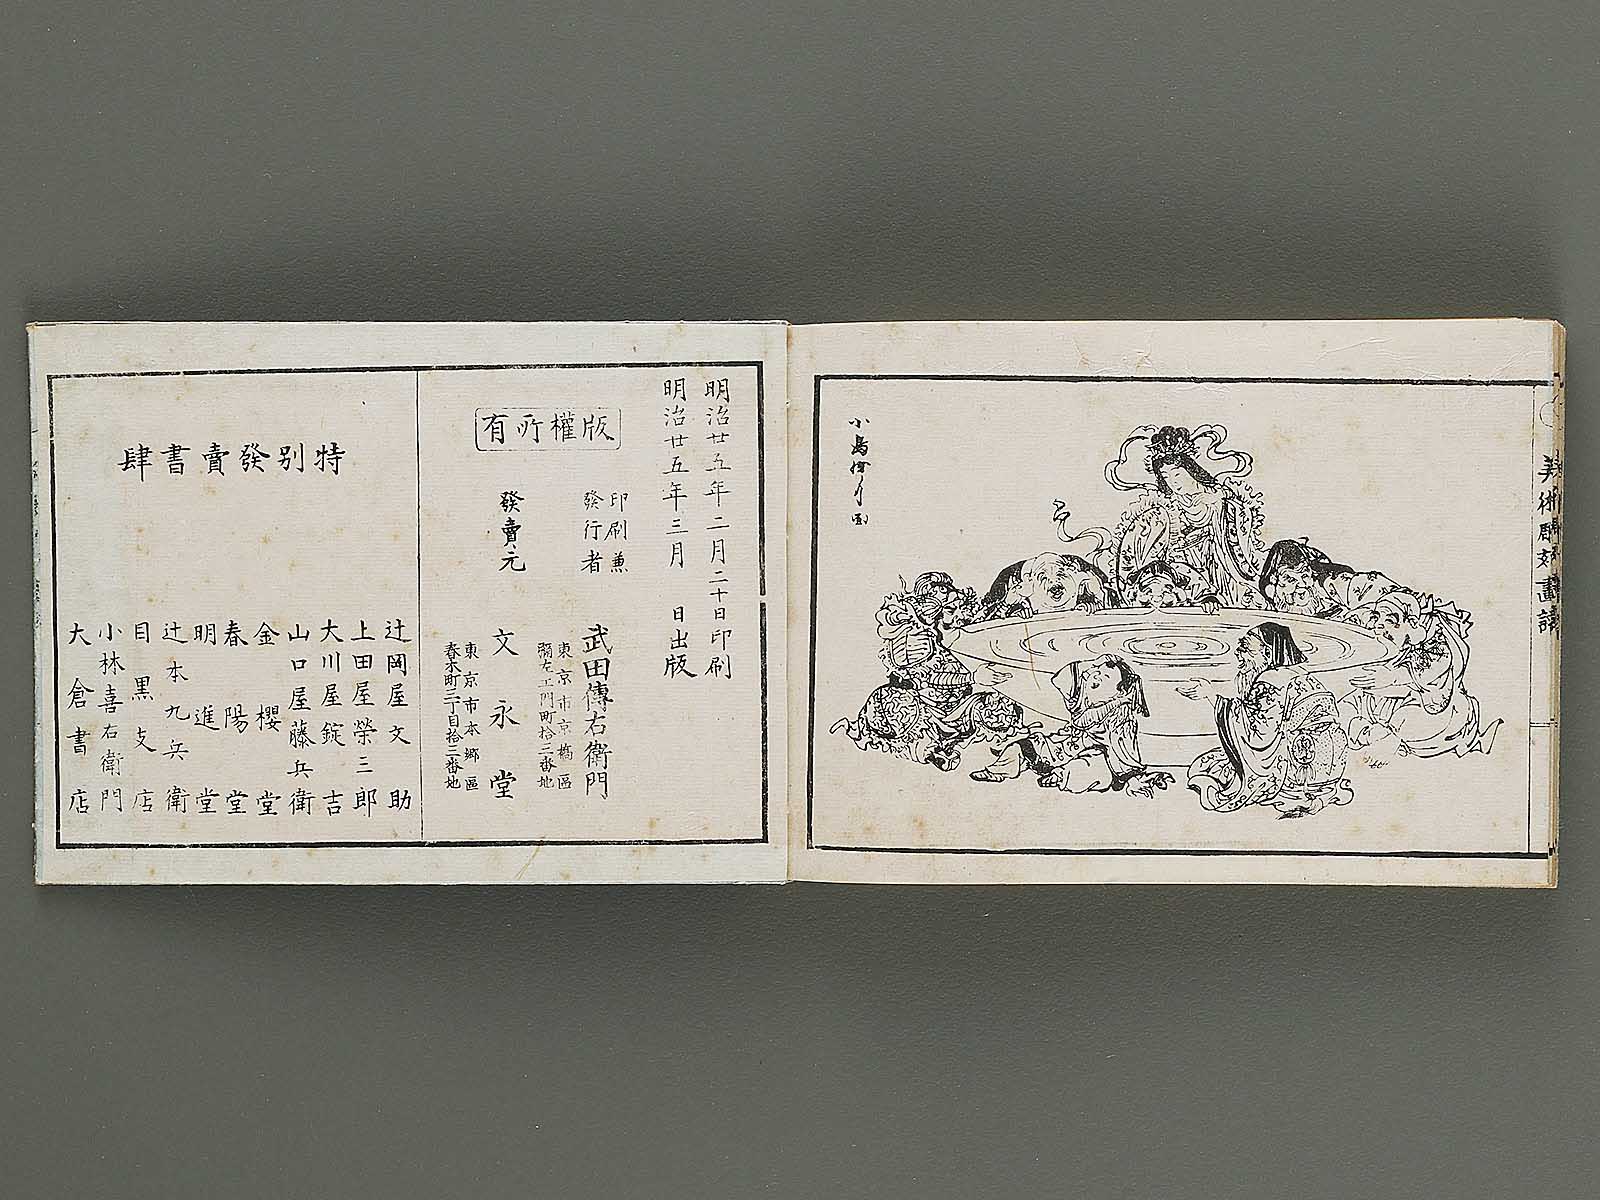 美術雕刻畫譜
小島勝月画
明治廿五年二月二十日印刷
明治廿五年三月　日出版
版權所有
印刷兼
發行者
東京市京橋區
彌左エ門町拾二番地
武田傳右衛門
發賣元
東京市本郷區
春木町三丁目拾三番地
文永堂
特別發賣書肆
辻岡屋文助
上田屋榮三郎
大川屋錠吉
山口屋藤兵衛
金櫻堂
春陽堂
明進堂
辻本九兵衛
目黒支店
小林喜右衛門
大倉書店